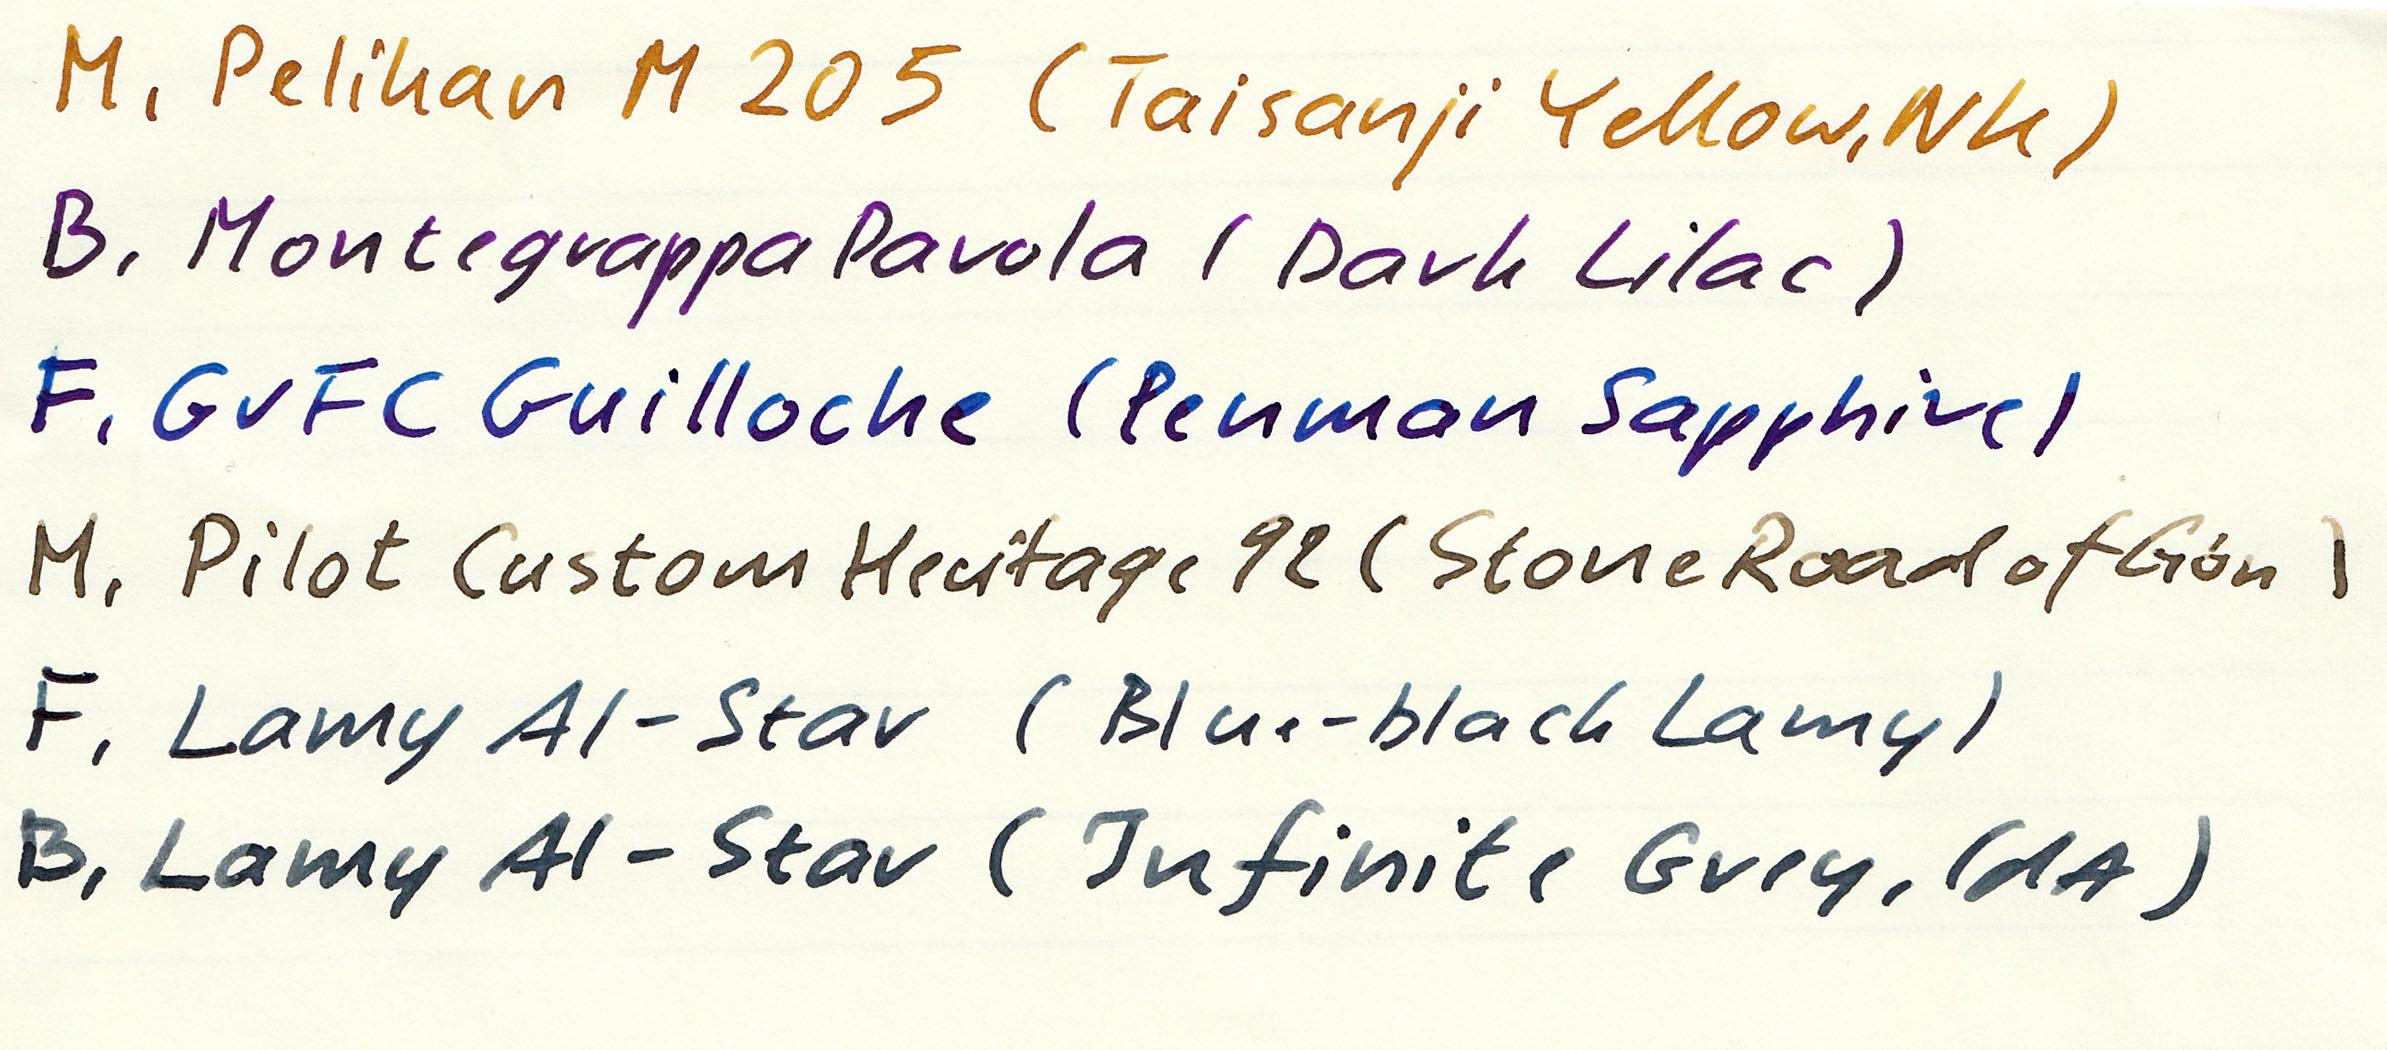 M, Pelikan M 205 (Taisanji Yellow, Nk)
B, Montegrappa Parola (Dark Lilac)
F, GvFC Guilloche (Penman Sapphire)
M, Pilot Custom Heritage 92 (Stone Road of Gion)
F, Lamy Al-Star (Blue-black Lamy)
B, Lamy Al-Star (Infinite Grey, CdA)